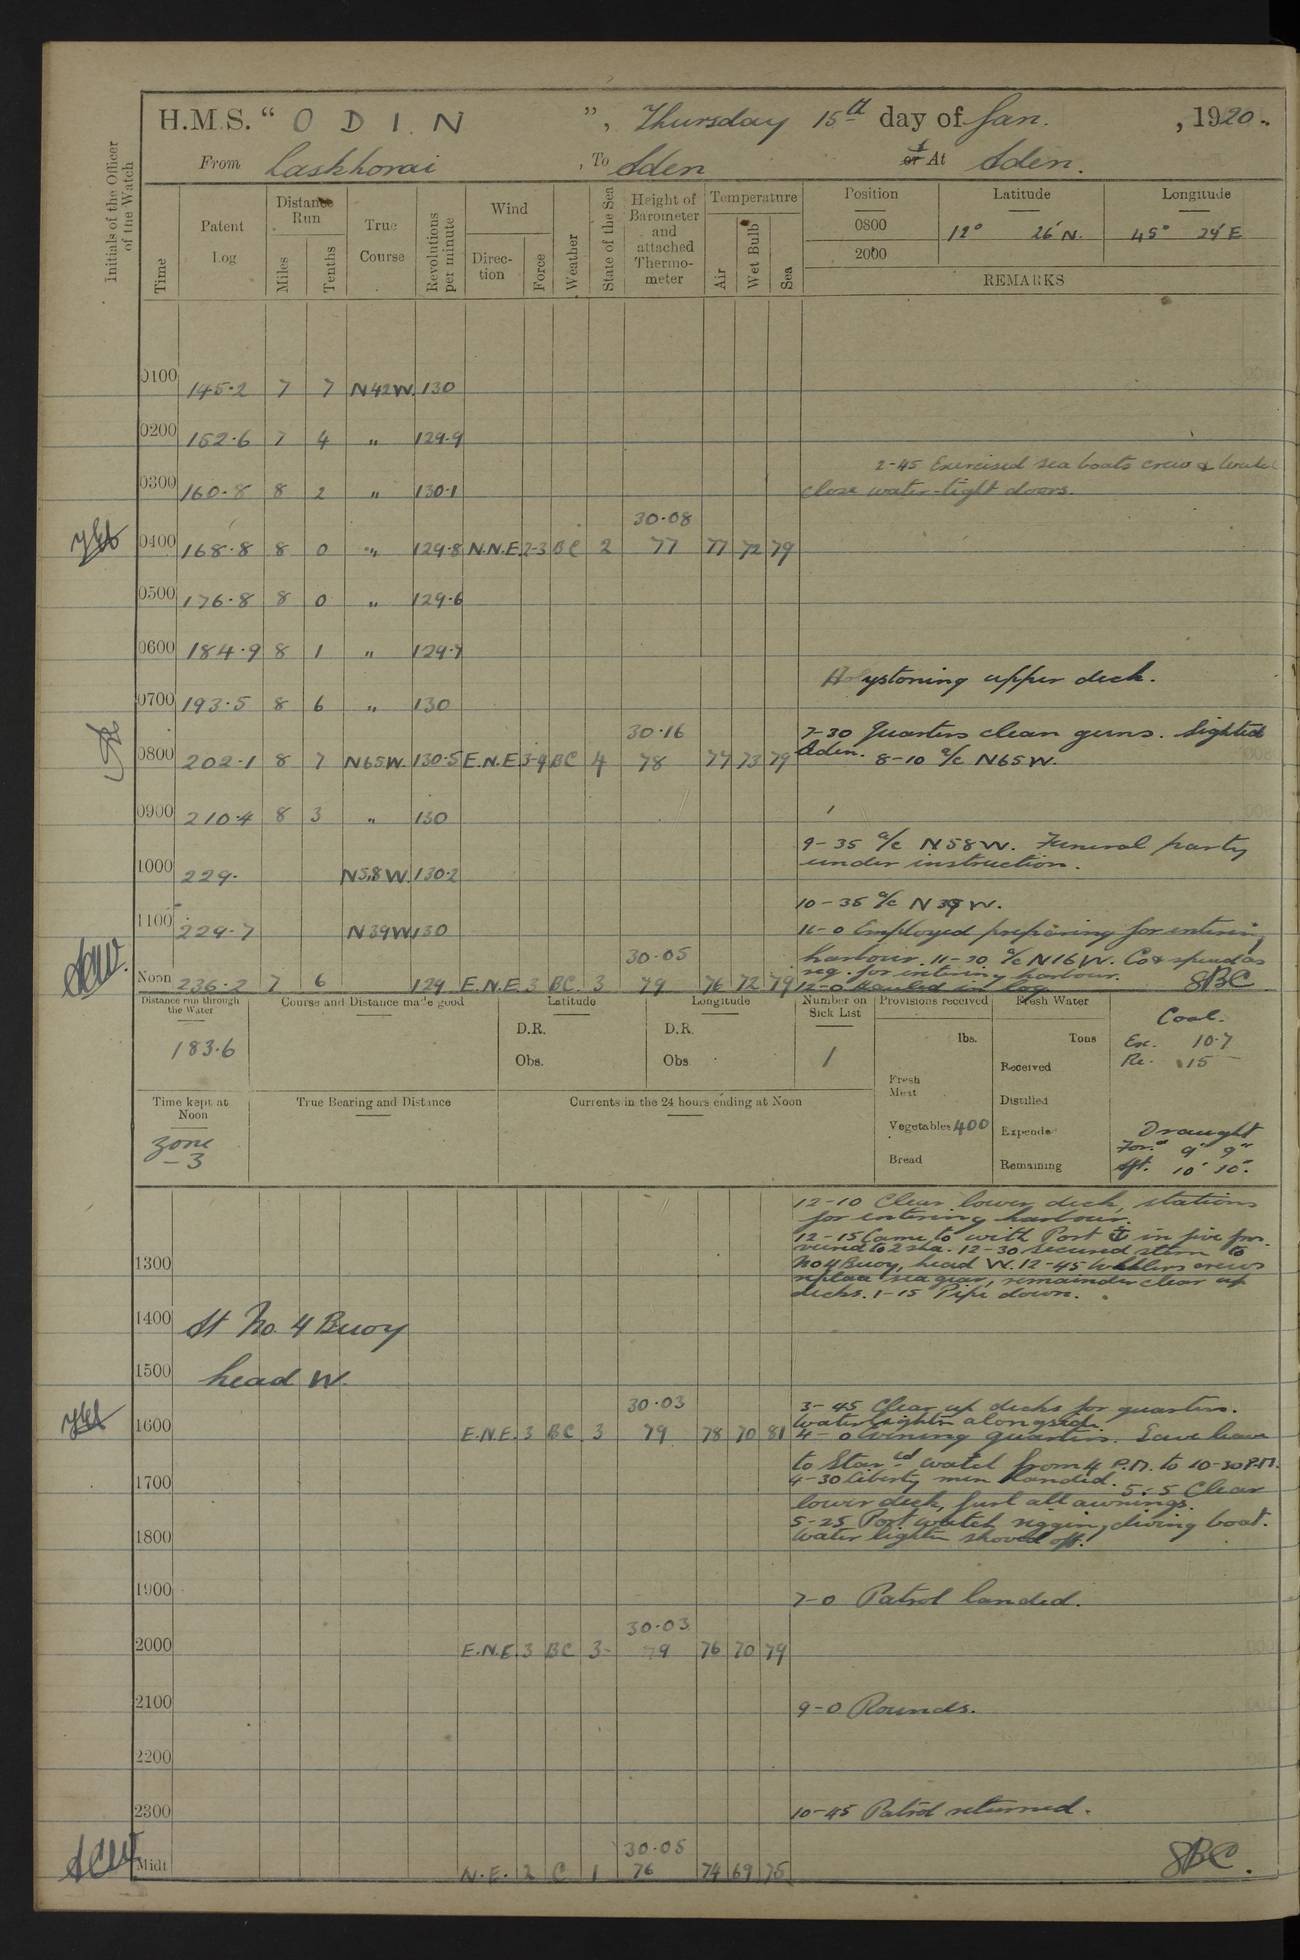 H.M.S. “ ODIN ”, Thursday 15th day of Jan. , 1920.
From Laskhorai , To Aden or & At Aden.
Initials of the Officer of the Watch
Time
Patent Log
Distance Run
Miles
Tenths
True Course
Revolutions per minute
Wind
Direction
Force
Weather
State of the Sea
Height of Barometer and attached Thermometer
Temperature
Air
Wet Bulb
Sea
Position Latitude Longitude
0800 12° 26′ N. 45° 29′ E
2000
REMARKS
0100 145.2 7 7 N42W. 130
0200 152.6 7 4 " 129.9
2-45 Exercised sea boats crew &
0300 160.8 8 2 " 130.1 close water-tight doors.
30.08
0400 168.8 8 0 " 129.8 N.N.E. 2-3 BC 2 77 77 72 79
0500 176.8 8 0 " 129.6
0600 184.9 8 1 " 129.7
Holystoning upper deck.
0700 193.5 8 6 " 130
30.16 7-30 Quarters clean guns. Sighted
0800 202.1 8 7 N65W. 130.5 E.N.E. 3-4 BC 4 78 77 73 79 Aden. 8-10 a/c N65W.
0900 210.4 8 3 " 130
9-35 a/c N58W. Funeral party
under instruction.
1000 229. N58W. 130.2
10-35 a/c N39W.
1100 229.7 N39W. 130 11-0 Employed preparing for entering
30.05 harbour. 11-30 a/c N16W. Co & speed as
req. for entering harbour.
Noon 236.2 7 6 124 E.N.E. 3 BC. 3 79 76 72 79 12-0 Hauled in log SBC
Distance run through the Water
183.6
Course and Distance made good
Latitude
D.R.
Obs.
Longitude
D.R.
Obs
Number on Sick List
1
Provisions received
lbs.
Fresh Meat
Vegetables 400
Bread
Fresh Water
Tons
Received
Distilled
Expended
Remaining
Coal.
Ex. 10.7
Re. 15
Draught
For.d 9′ 9″
Aft. 10′ 10″.
Time kept at Noon
Zone
-3
True Bearing and Distance
Currents in the 24 hours ending at Noon
12-10 Clear lower deck, stations
for entering harbour.
12-15 Came to with Port ⚓ in five fms.
veered to 2 sha. 12-30 secured stern to
1300 No 4 Buoy, head W. 12-45 Whalers crews
replace sea gear, remainder clear up
decks. 1-15 Pipe down.
1400 At No. 4 Buoy
1500 head W.
30.03 3-45 Clear up decks for quarters.
Water lighter alongside.
1600 E.N.E. 3 BC 3 79 78 70 81 4-0 Evening quarters. Gave leave
to Star'cd watch from 4 P.M. to 10-30 P.M.
1700 4-30 Liberty men landed. 5.5 Clear
lower deck, furl all awnings.
5-25 Port watch rigging diving boat.
1800 Water lighter shoved off.
1900 7-0 Patrol landed.
30.03
2000 E.N.E. 3 BC 3- 79 76 70 79
2100 9-0 Rounds.
2200
2300 10-45 Patrol returned.
30.05
Midt N.E. 2 C 1 76 74 69 75 SBC.